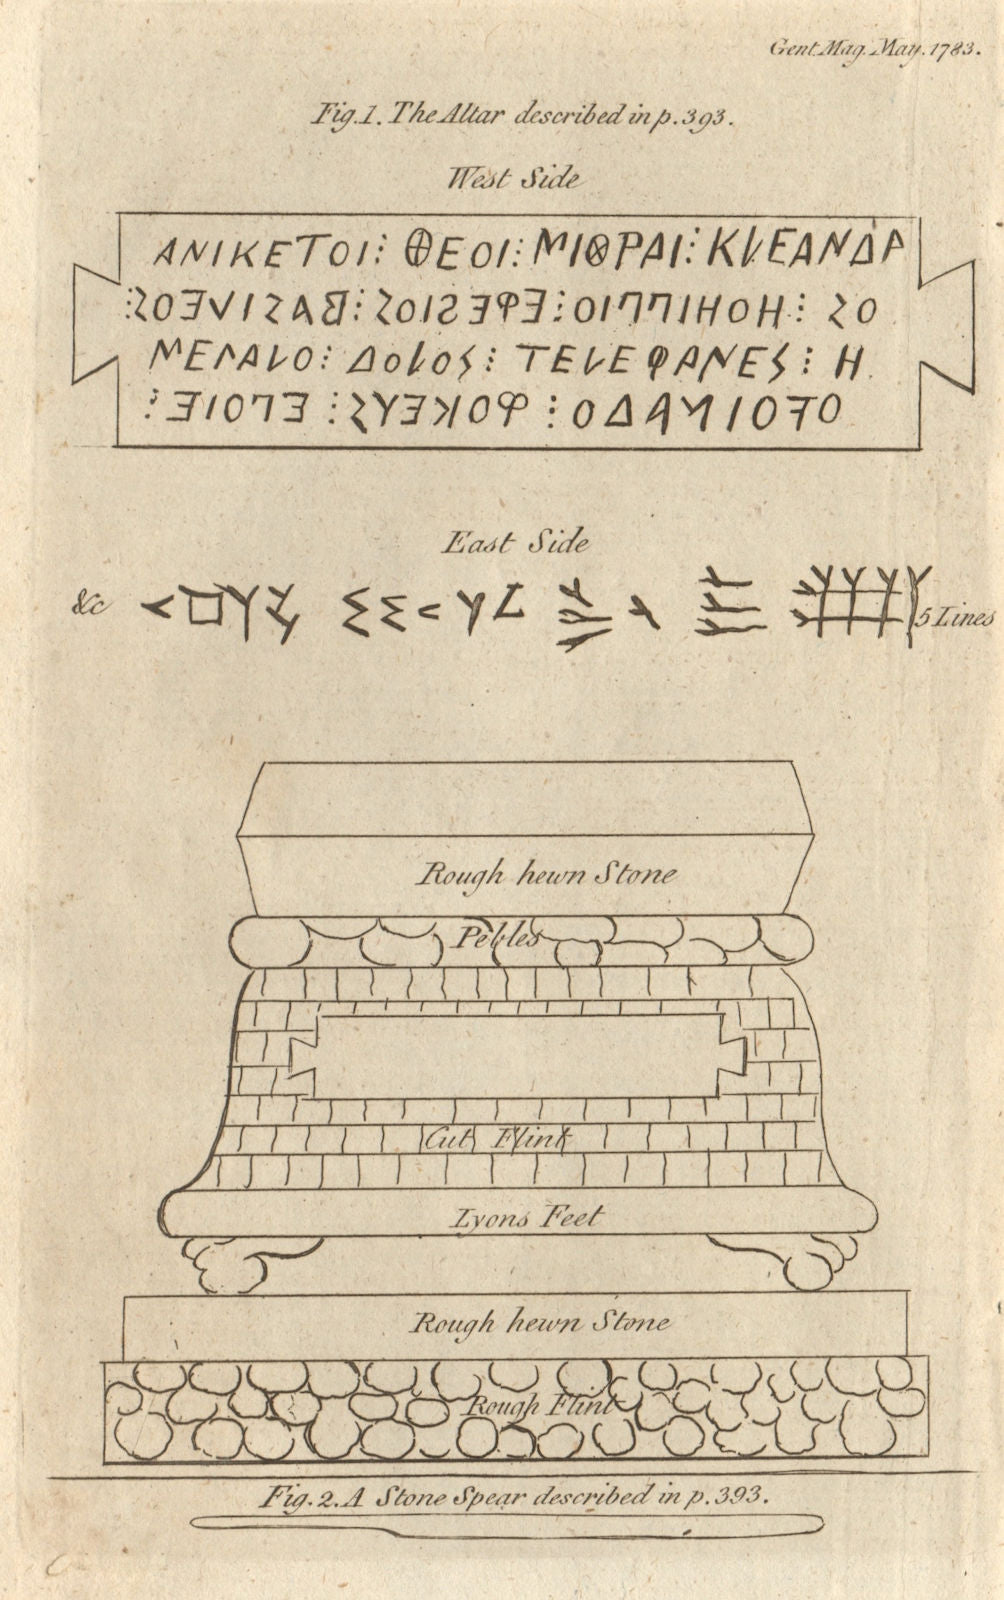 Gent. Mag. May. 1783.
Fig. 1. The Altar described in p. 393.
West Side
ΑΝΙΚΕΤΟΙ⋮ ΘΕΟΙ⋮ ΜΙΘΡΑΙ⋮ ΚΛΕΑΝΔΡ
ΟΣ⋮ ΗΟΗΙΠΠΙΟ⋮ ΕΦΕΣΙΟΣ⋮ ΒΑΣΙΛΕΟΣ⋮
ΜΕΓΑΛΟ⋮ ΔΟΛΟΣ⋮ ΤΕΛΕΦΑΝΕΣ⋮ Η
ΟϜΟΙΜΑΔΟ⋮ ΦΟΚΕΥΣ⋮ ΕΠΟΙΕ⋮
East Side
&c 5 Lines
Rough hewn Stone
Pebles
Cut Flint
Lyons Feet
Rough hewn Stone
Rough Flint
Fig. 2. A Stone Spear described in p. 393.